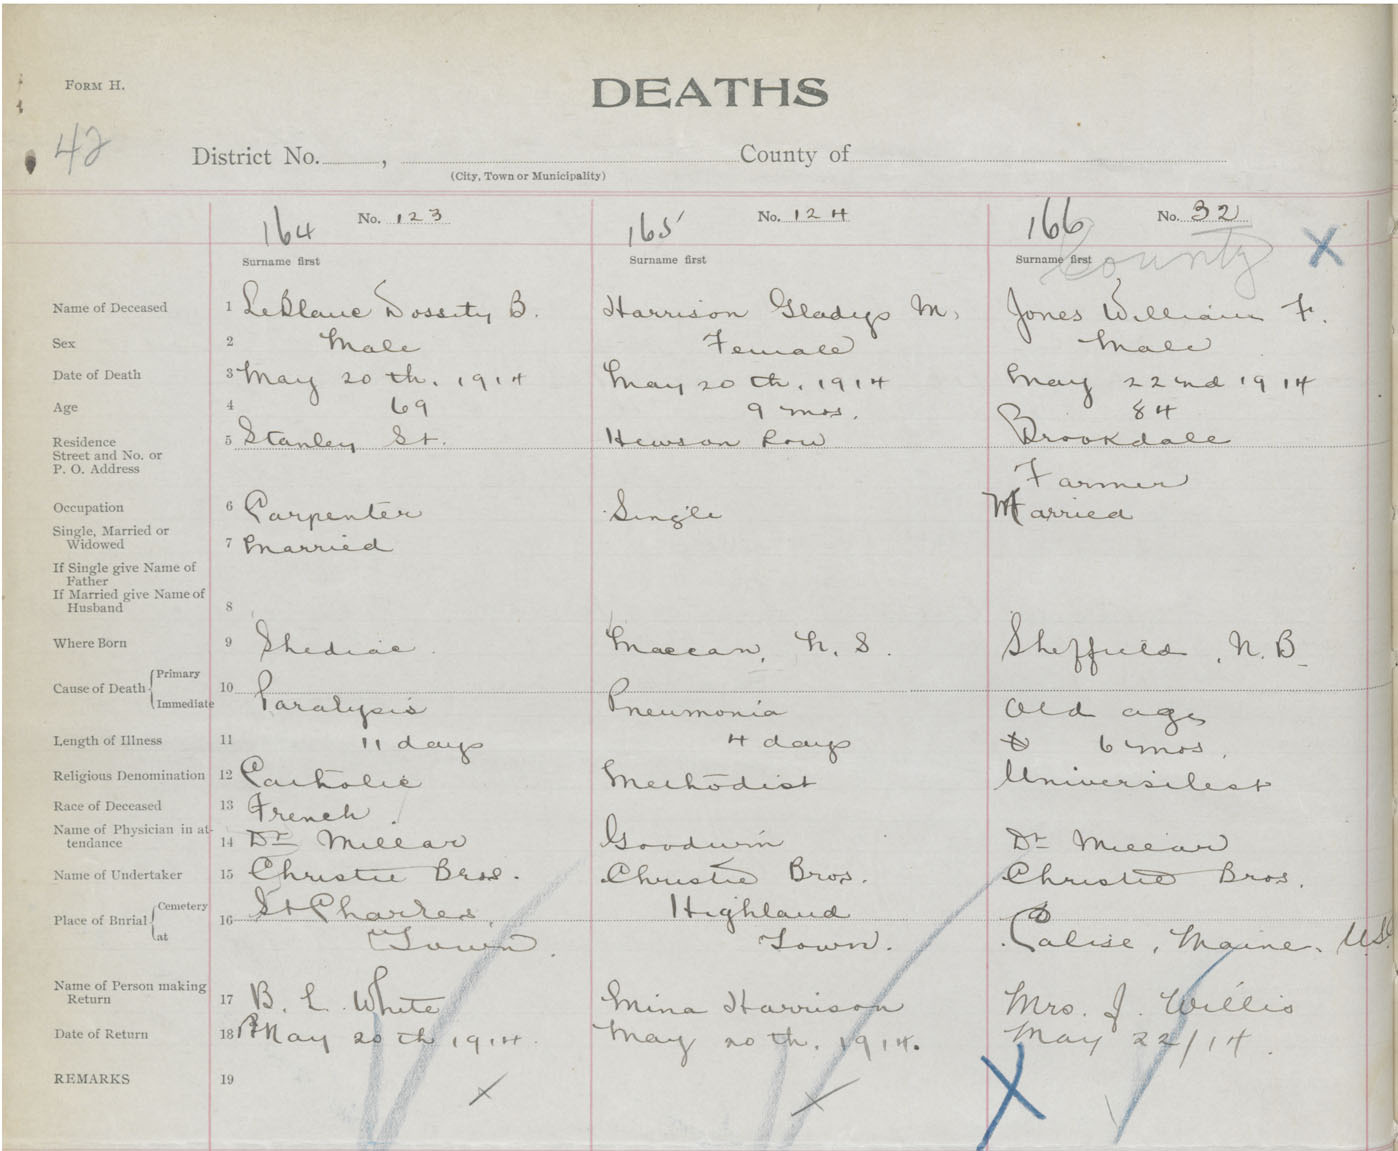 FORM H.
DEATHS
42
District No. , County of
(City, Town or Municipality)
164 No. 123 165 No. 124 166 No. 32
County X
Surname first Surname first Surname first
Name of Deceased 1 LeBlanc Dossity B. Harrison Gladys M. Jones William F.
Sex 2 Male Female Male
Date of Death 3 May 20th, 1914 May 20th, 1914 May 22nd 1914
Age 4 69 9 mos. 84
Residence 5 Stanley St. Hewson Row Brookdale
Street and No. or
P. O. Address
Farmer
Occupation 6 Carpenter Single Married
Single, Married or
Widowed 7 Married
If Single give Name of
Father
If Married give Name of
Husband 8
Where Born 9 Shediac. Maccan, N. S. Sheffield, N. B.
Primary
Cause of Death 10 Paralysis Pneumonia Old age
Immediate
Length of Illness 11 11 days 4 days 6 mos.
Religious Denomination 12 Catholic Methodist Universilest
Race of Deceased 13 French
Name of Physician in at-
tendance 14 Dr Millar Goodwin Dr Millar
Name of Undertaker 15 Christie Bros. Christie Bros. Christie Bros.
Cemetery
Place of Bnrial 16 St Charles Highland
at Town. Town. Calise, Maine. U.S.
Name of Person making
Return 17 B. L. White Mina Harrison Mrs. J. Willis
Date of Return 18 May 20th 1914. May 20th, 1914. May 22/14.
REMARKS 19 X X X